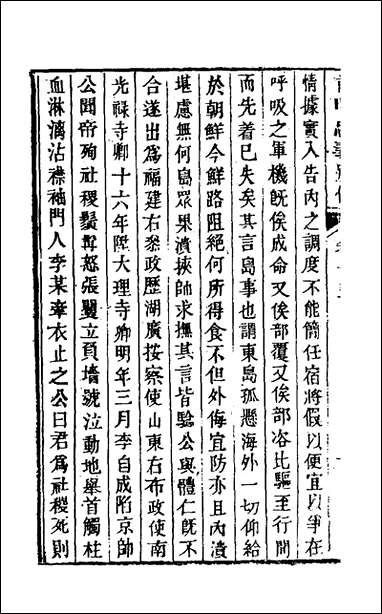 情據實入告內之調度不能簡任宿將假以便宜以爭在
呼吸之軍機旣俟成命又俟部覆又俟部咨比驅至行間
而先着已失矣其言島事也謂東島孤懸海外一切仰給
於朝鮮今鮮路阻絕何所得食不但外侮宜防亦且內潰
堪慮無何島眾果潰挾帥求撫其言皆驗公與體仁旣不
合遂出爲福建右叅政歷湖廣按察使山東右布政使南
光祿寺卿十六年陞大理寺卿明年三月李自成陷京師
公聞帝殉社稷鬚髯怒張翼立負墻號泣動地舉首觸柱
血淋漓沾襟袖門人李某牽衣止之公曰君爲社稷死則